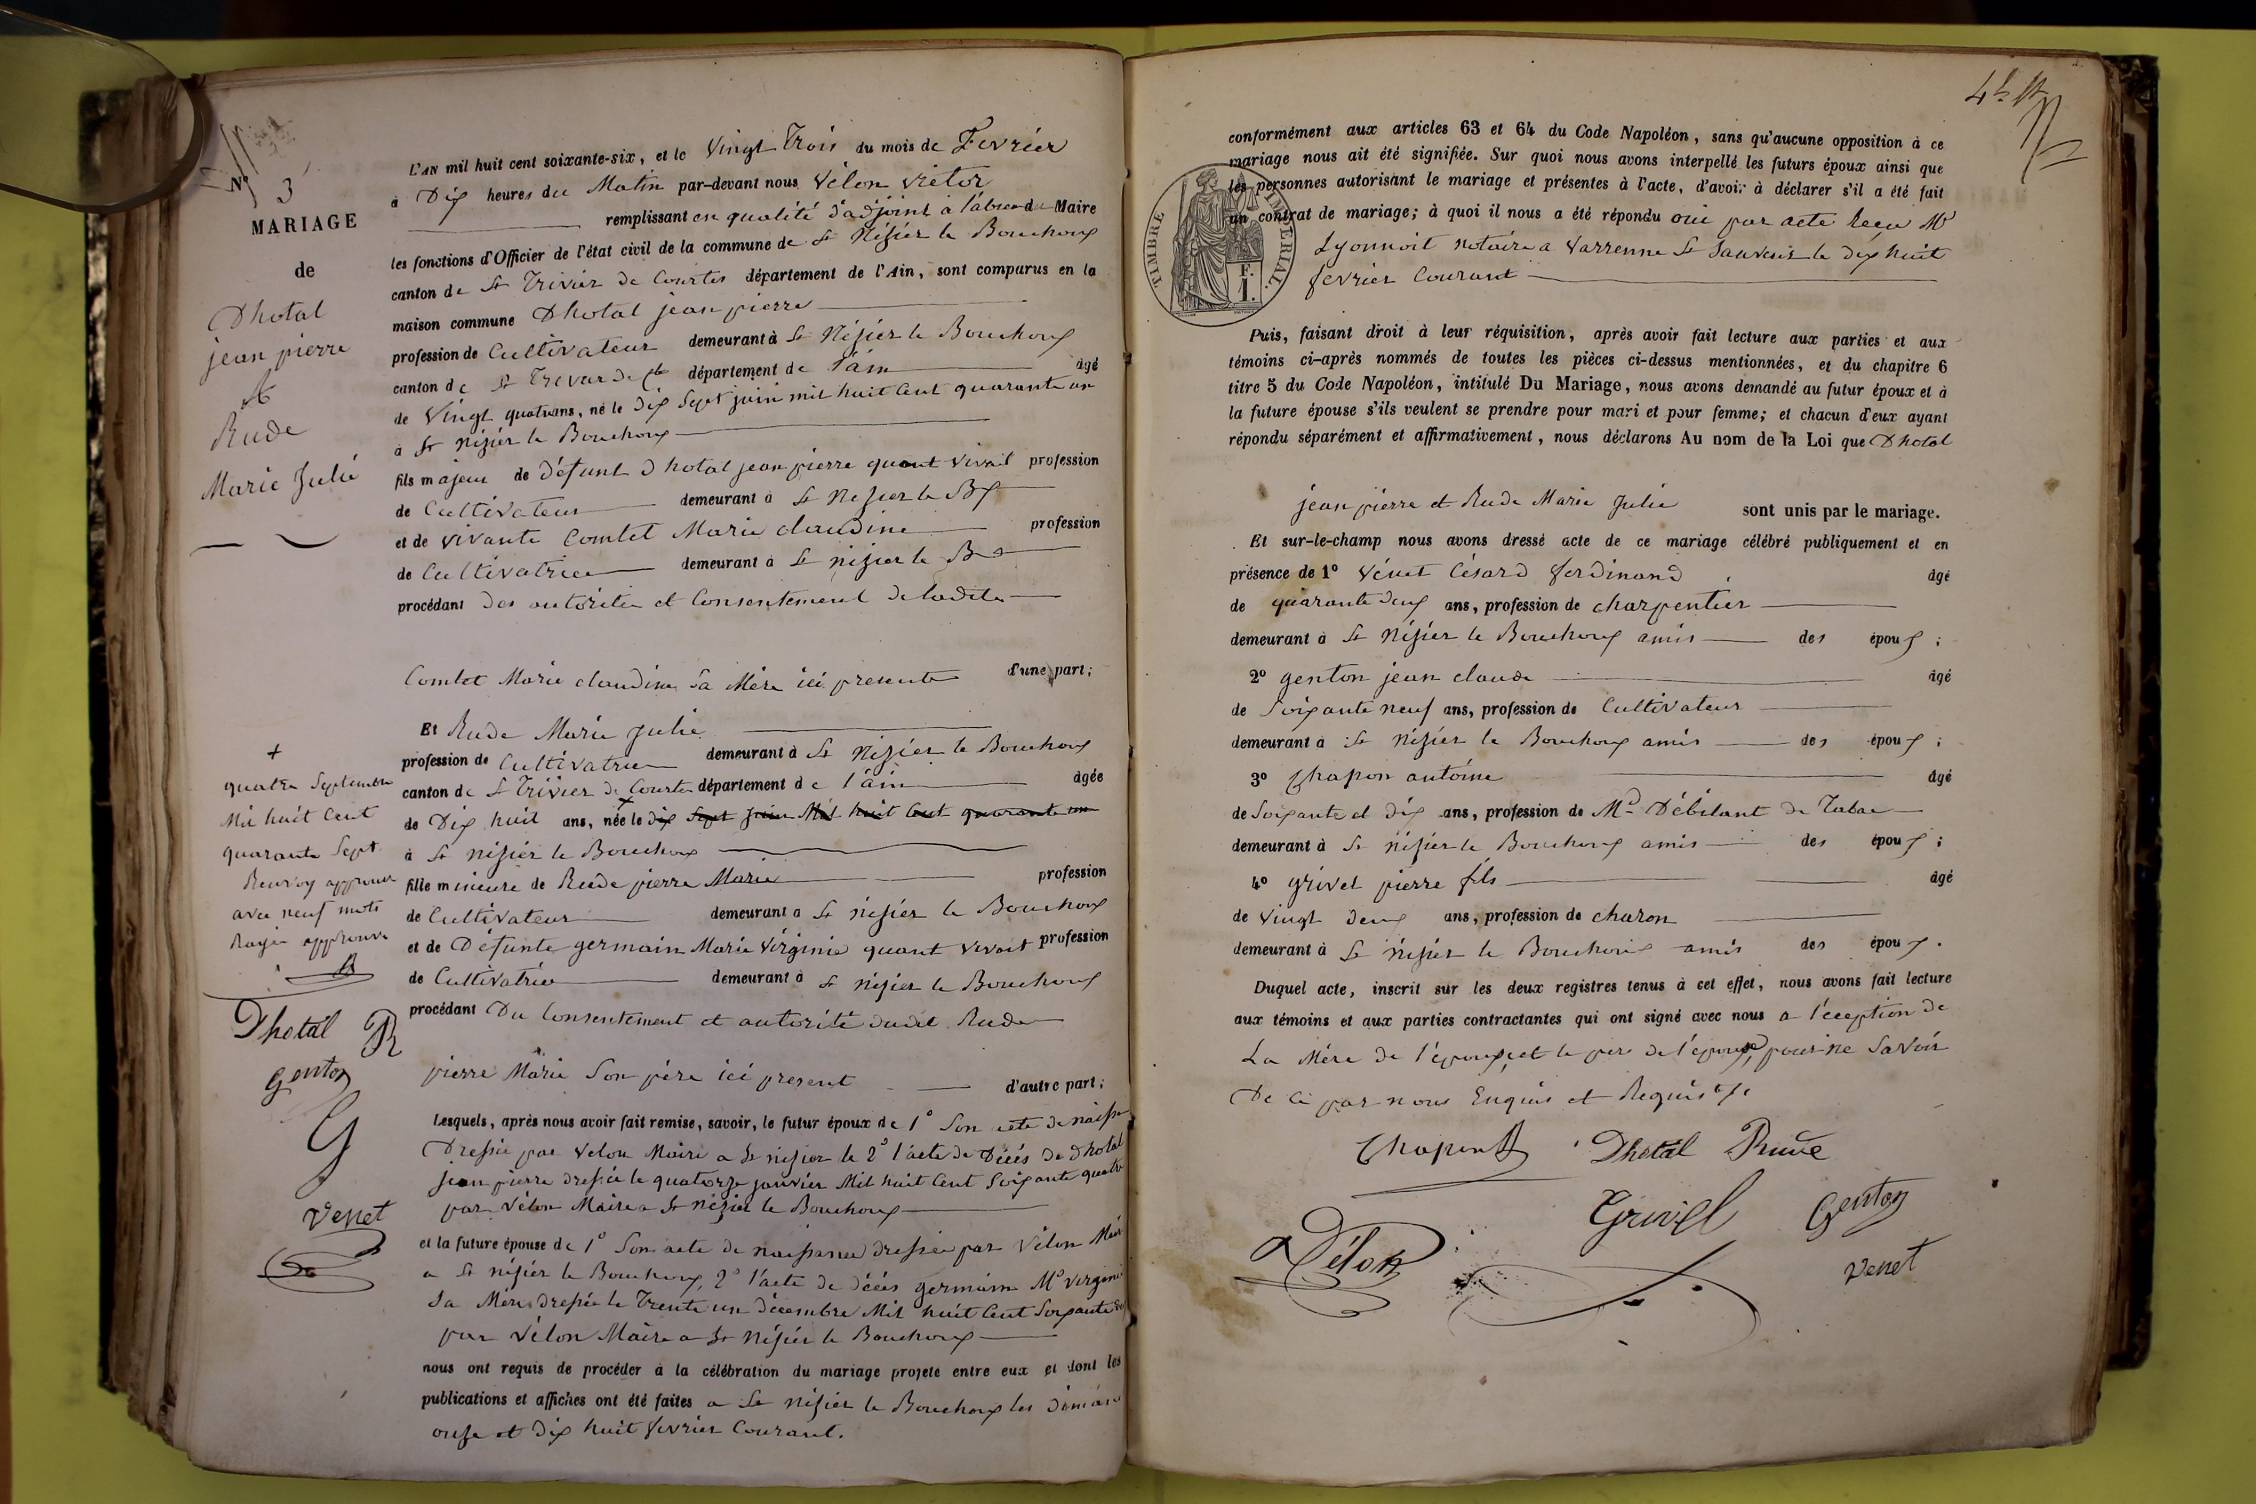 N° 3
MARIAGE
de
Dhotal
jean pierre
et
Rude
Marie Julie
L'AN mil huit cent soixante-six, et le Vingt Trois du mois de Fevrier
à Dix heures du Matin par-devant nous Vélon Victor
remplissant en qualité d'adjoint à l'absence du Maire
les fonctions d'Officier de l'état civil de la commune de St Nizier le Bouchoux
canton de St Trivier de Courtes département de l'Ain, sont comparus en la
maison commune Dhotal jean pierre
profession de Cultivateur demeurant à St Nizier le Bouchoux
canton de St Trivier de Ctes département de l'ain âgé
de Vingt quatre ans, né le dix Sept juin mil huit Cent quarante un
à St Nizier le Bouchoux
fils majeur de défunt Dhotal jean pierre quant vivait profession
de Cultivateur demeurant à St Nizier le Bx
et de vivante Comtet Marie claudine profession
de Cultivatrice demeurant à St nizier le Bx
procédant des autoritée et Consentement de ladite
Comtet Marie claudine Sa Mère ici presente d'une part;
Et Rude Marie Julie
profession de Cultivatrice demeurant à St Nizier le Bouchoux
canton de St Trivier de Courtes département de l'ain âgée
de Dix huit ans, née le dix Sept Juin Mil huit Cent quarante un
à St nizier le Bouchoux
fille mineure de Rude pierre Marie profession
de Cultivateur demeurant à St nizier le Bouchoux
et de Défunte germain Marie Virginie quant vivait profession
de Cultivatrice demeurant à St nizier le Bouchoux
procédant Du Consentement et autorité dudit Rude
pierre Marie Son père ici present d'autre part;
+
quatre Septembre
Mil huit Cent
quarante Sept
Renvoy approuvé
avec neuf mots
Rayée approuvé
Dhotal R
Genton
G
Venet
Lesquels, après nous avoir fait remise, savoir, le futur époux de 1° Son acte de naisse
Dressée par Velon Maire a St nizier le 2° l'acte de Décés de Dhotal
jean pierre dressée le quatorze janvier Mil huit Cent Soixante quatre
par Vélon Maire a St nizier le Bouchoux
et la future épouse de 1° Son acte de naissance dressée par Vélon Maire
a St nizier le Bouchoux, 2° l'acte de décés germain Me Virginie
Sa Mère dressée le Trente un décembre Mil huit Cent Soixante
par Vélon Maire a St Nizier le Bouchoux
nous ont requis de procéder à la célébration du mariage projeté entre eux et dont les
publications et affiches ont été faites a St nizier le Bouchoux les diman
onze et dix huit fevrier Courant.
conformément aux articles 63 et 64 du Code Napoléon, sans qu'aucune opposition à ce
mariage nous ait été signifiée. Sur quoi nous avons interpellé les futurs époux ainsi que
les personnes autorisant le mariage et présentes à l'acte, d'avoir à déclarer s'il a été fait
un contrat de mariage; à quoi il nous a été répondu oui par acte Reçu Me
Lyonnoit notaire a Varenne St Sauveur le dix huit
fevrier Courant
TIMBRE IMPÉRIAL.
F.
1.
Puis, faisant droit à leur réquisition, après avoir fait lecture aux parties et aux
témoins ci-après nommés de toutes les pièces ci-dessus mentionnées, et du chapitre 6
titre 5 du Code Napoléon, intitulé Du Mariage, nous avons demandé au futur époux et à
la future épouse s'ils veulent se prendre pour mari et pour femme; et chacun d'eux ayant
répondu séparément et affirmativement, nous déclarons Au nom de la Loi que Dhotal
jean pierre et Rude Marie Julie sont unis par le mariage.
Et sur-le-champ nous avons dressé acte de ce mariage célébré publiquement et en
présence de 1° Vénet Césard ferdinand âgé
de quarante deux ans, profession de charpentier
demeurant à St Nizier le Bouchoux amis des époux;
2° genton jean claude âgé
de Soixante neuf ans, profession de Cultivateur
demeurant à St Nizier le Bouchoux amis des époux;
3° Chapon antoine âgé
de Soixante et dix ans, profession de Md Débitant de Tabac
demeurant à St nizier le Bouchoux amis des époux;
4° grivel pierre fils âgé
de Vingt deux ans, profession de charon
demeurant à St nizier le Bouchoux amis des époux.
Duquel acte, inscrit sur les deux registres tenus à cet effet, nous avons fait lecture
aux témoins et aux parties contractantes qui ont signé avec nous a l'éception de
La Mére de l'époux, et le pere de l'épouse, pour ne Savoir
De ce par nous Enquis et Requis
Chapon Dhotal Rude
Grivel Genton
Vélon Venet